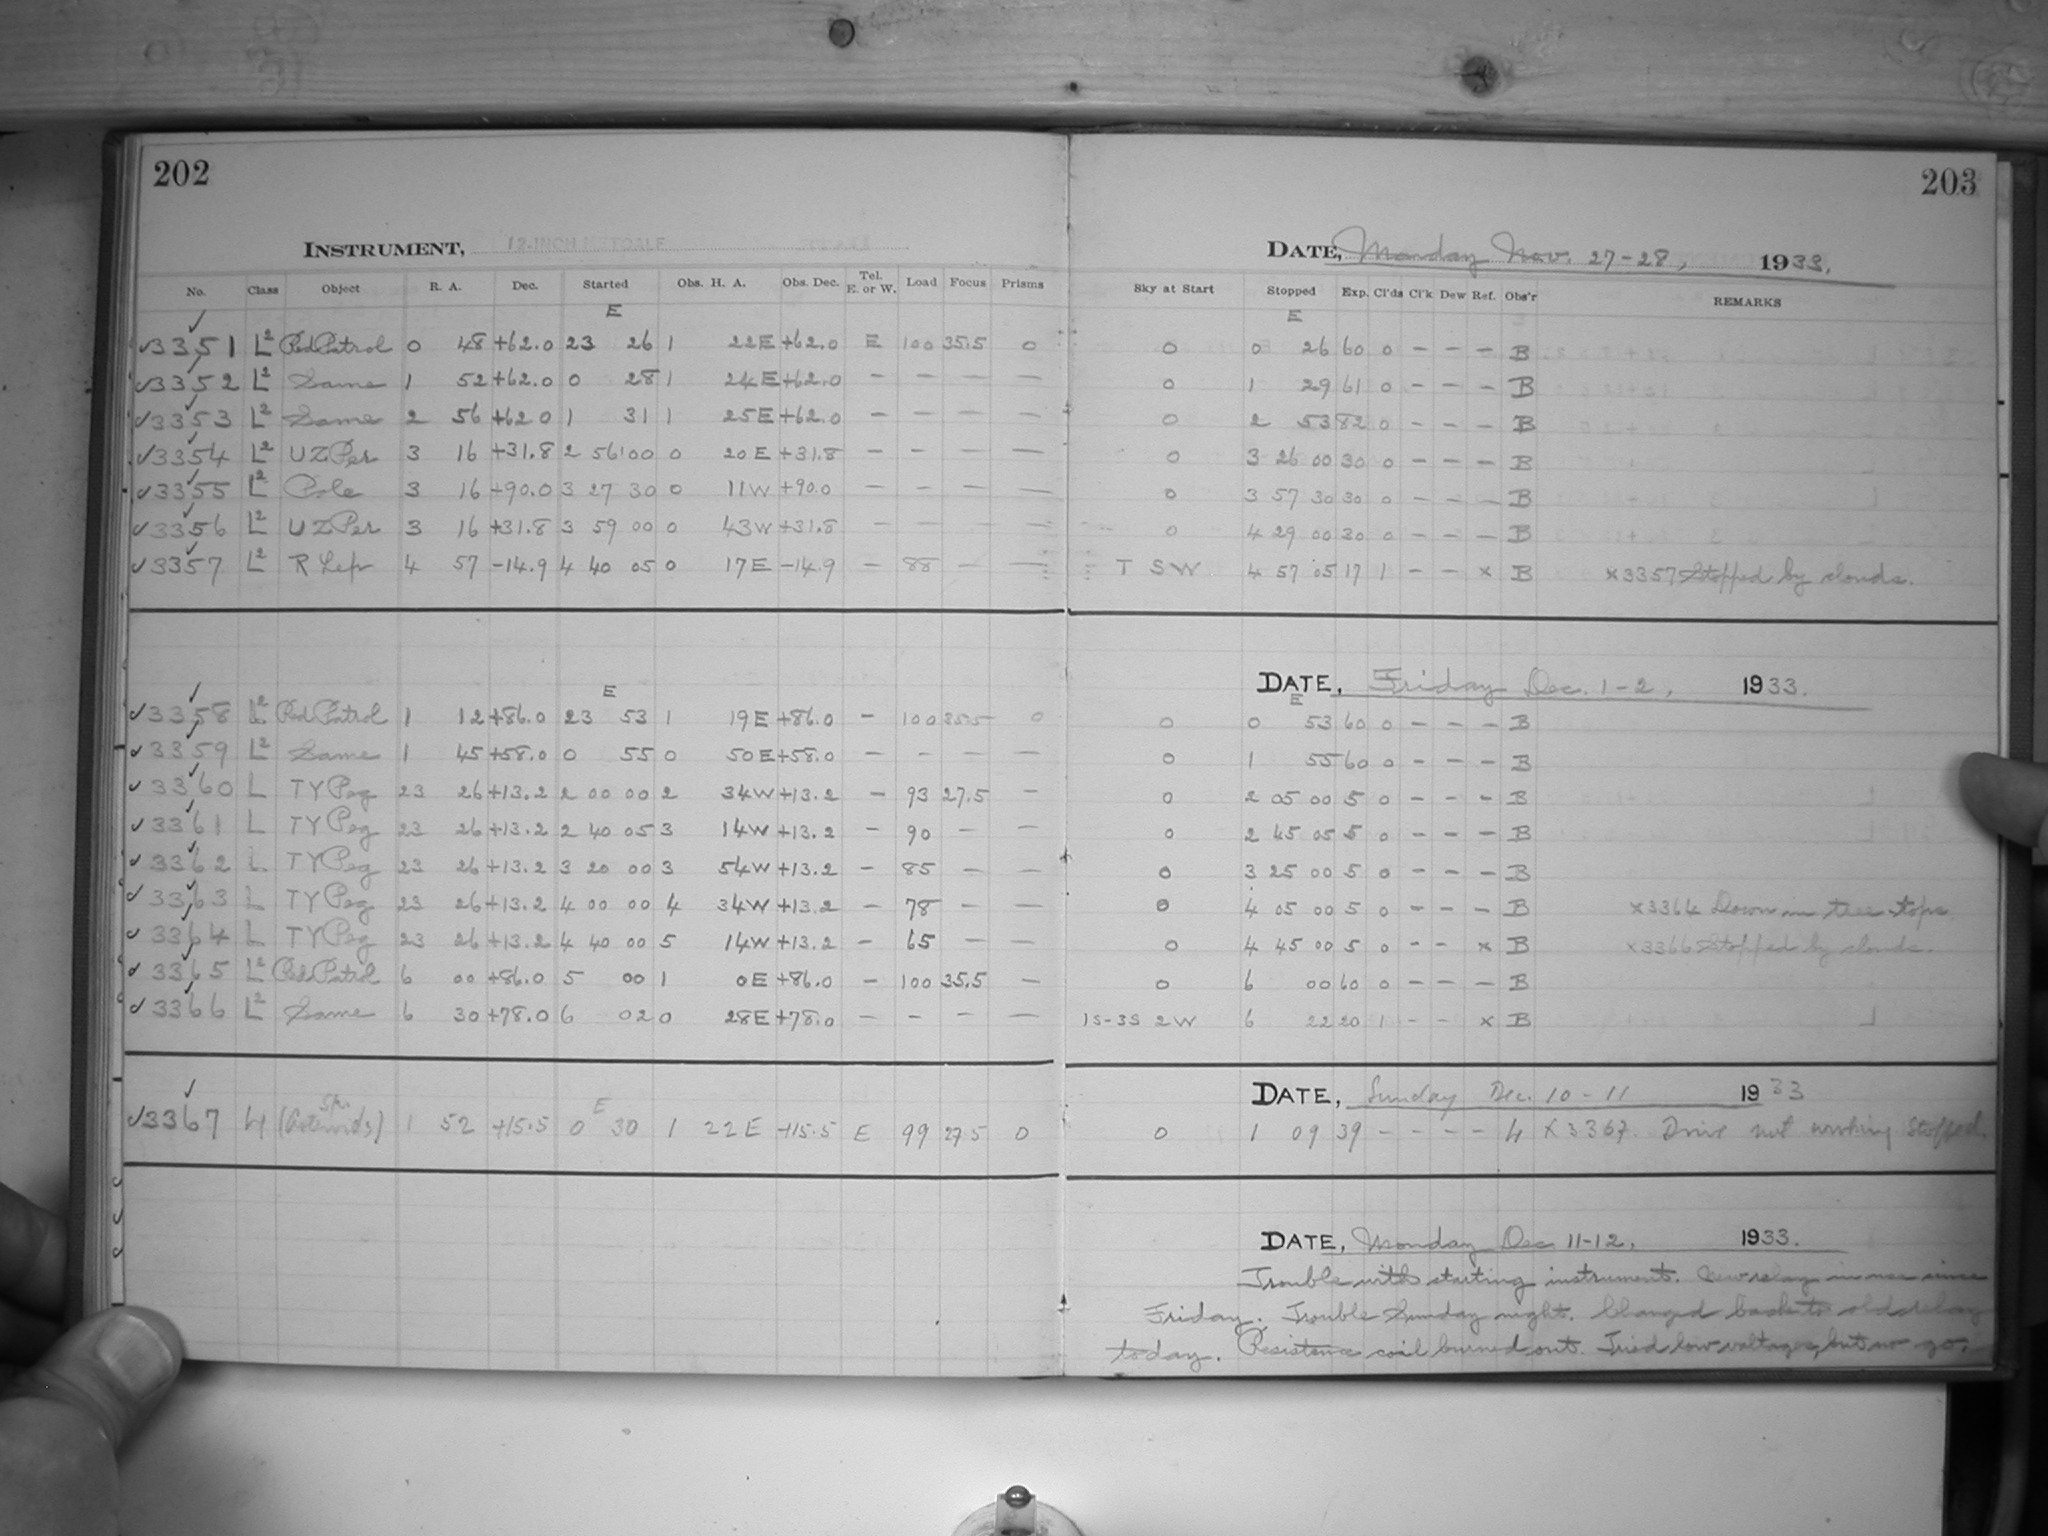 202
INSTRUMENT, 12-INCH METCALF
No. Class Object R. A. Dec. Started Obs. H. A. Obs. Dec. Tel. E. or W. Load Focus Prisms
E
✓3351 L² Red Patrol 0 48 +62.0 23 26 1 22E +62.0 E 100 35.5 0
✓3352 L² Same 1 52 +62.0 0 28 1 24E +62.0 — — — —
✓3353 L² Same 2 56 +62.0 1 31 1 25E +62.0 — — — —
✓3354 L² UZ Per 3 16 +31.8 2 56 00 0 20E +31.8 — — — —
✓3355 L² Pole 3 16 +90.0 3 27 30 0 11W +90.0 — — — —
✓3356 L² UZ Per 3 16 +31.8 3 59 00 0 43W +31.8 — — — —
✓3357 L² R Lep 4 57 -14.9 4 40 05 0 17E -14.9 — 88 — —
E
✓3358 L² Red Patrol 1 12 +86.0 23 53 1 19E +86.0 — 100 35.5 0
✓3359 L² Same 1 45 +58.0 0 55 0 50E +58.0 — — — —
✓3360 L TY Peg 23 26 +13.2 2 00 00 2 34W +13.2 — 93 27.5 —
✓3361 L TY Peg 23 26 +13.2 2 40 05 3 14W +13.2 — 90 — —
✓3362 L TY Peg 23 26 +13.2 3 20 00 3 54W +13.2 — 85 — —
✓3363 L TY Peg 23 26 +13.2 4 00 00 4 34W +13.2 — 78 — —
✓3364 L TY Peg 23 26 +13.2 4 40 00 5 14W +13.2 — 65 — —
✓3365 L² Red Patrol 6 00 +86.0 5 00 1 0E +86.0 — 100 35.5 —
✓3366 L² Same 6 30 +78.0 6 02 0 28E +78.0 — — — —
E
✓3367 (Asteroids) 1 52 +15.5 0 30 1 22E +15.5 E 99 27.5 0
203
DATE, Monday Nov. 27-28, 1933.
Sky at Start Stopped Exp. Cl'ds Cl'k Dew Ref. Obs'r REMARKS
E
0 0 26 60 0 — — — B
0 1 29 61 0 — — — B
0 2 53 82 0 — — — B
0 3 26 00 30 0 — — — B
0 3 57 30 30 0 — — — B
0 4 29 00 30 0 — — — B
T SW 4 57 05 17 1 — — x B x3357 Stopped by clouds.
DATE, Friday Dec. 1-2, 1933.
E
0 0 53 60 0 — — — B
0 1 55 60 0 — — — B
0 2 05 00 5 0 — — — B
0 2 45 05 5 0 — — — B
0 3 25 00 5 0 — — — B
0 4 05 00 5 0 — — — B x3364 Down in tree tops
0 4 45 00 5 0 — — x B x3366 Stopped by clouds.
0 6 00 60 0 — — — B
1S-3S 2W 6 22 20 1 — — x B
DATE, Sunday Dec. 10-11 1933
0 1 09 39 — — — — x3367. Drive not working stopped.
DATE, Monday Dec 11-12, 1933.
Trouble with starting instrument. New relay in use since
Friday. Trouble Sunday night. Changed back to old relay
today. Resistance coil burned out. Tried low voltages, but no go.